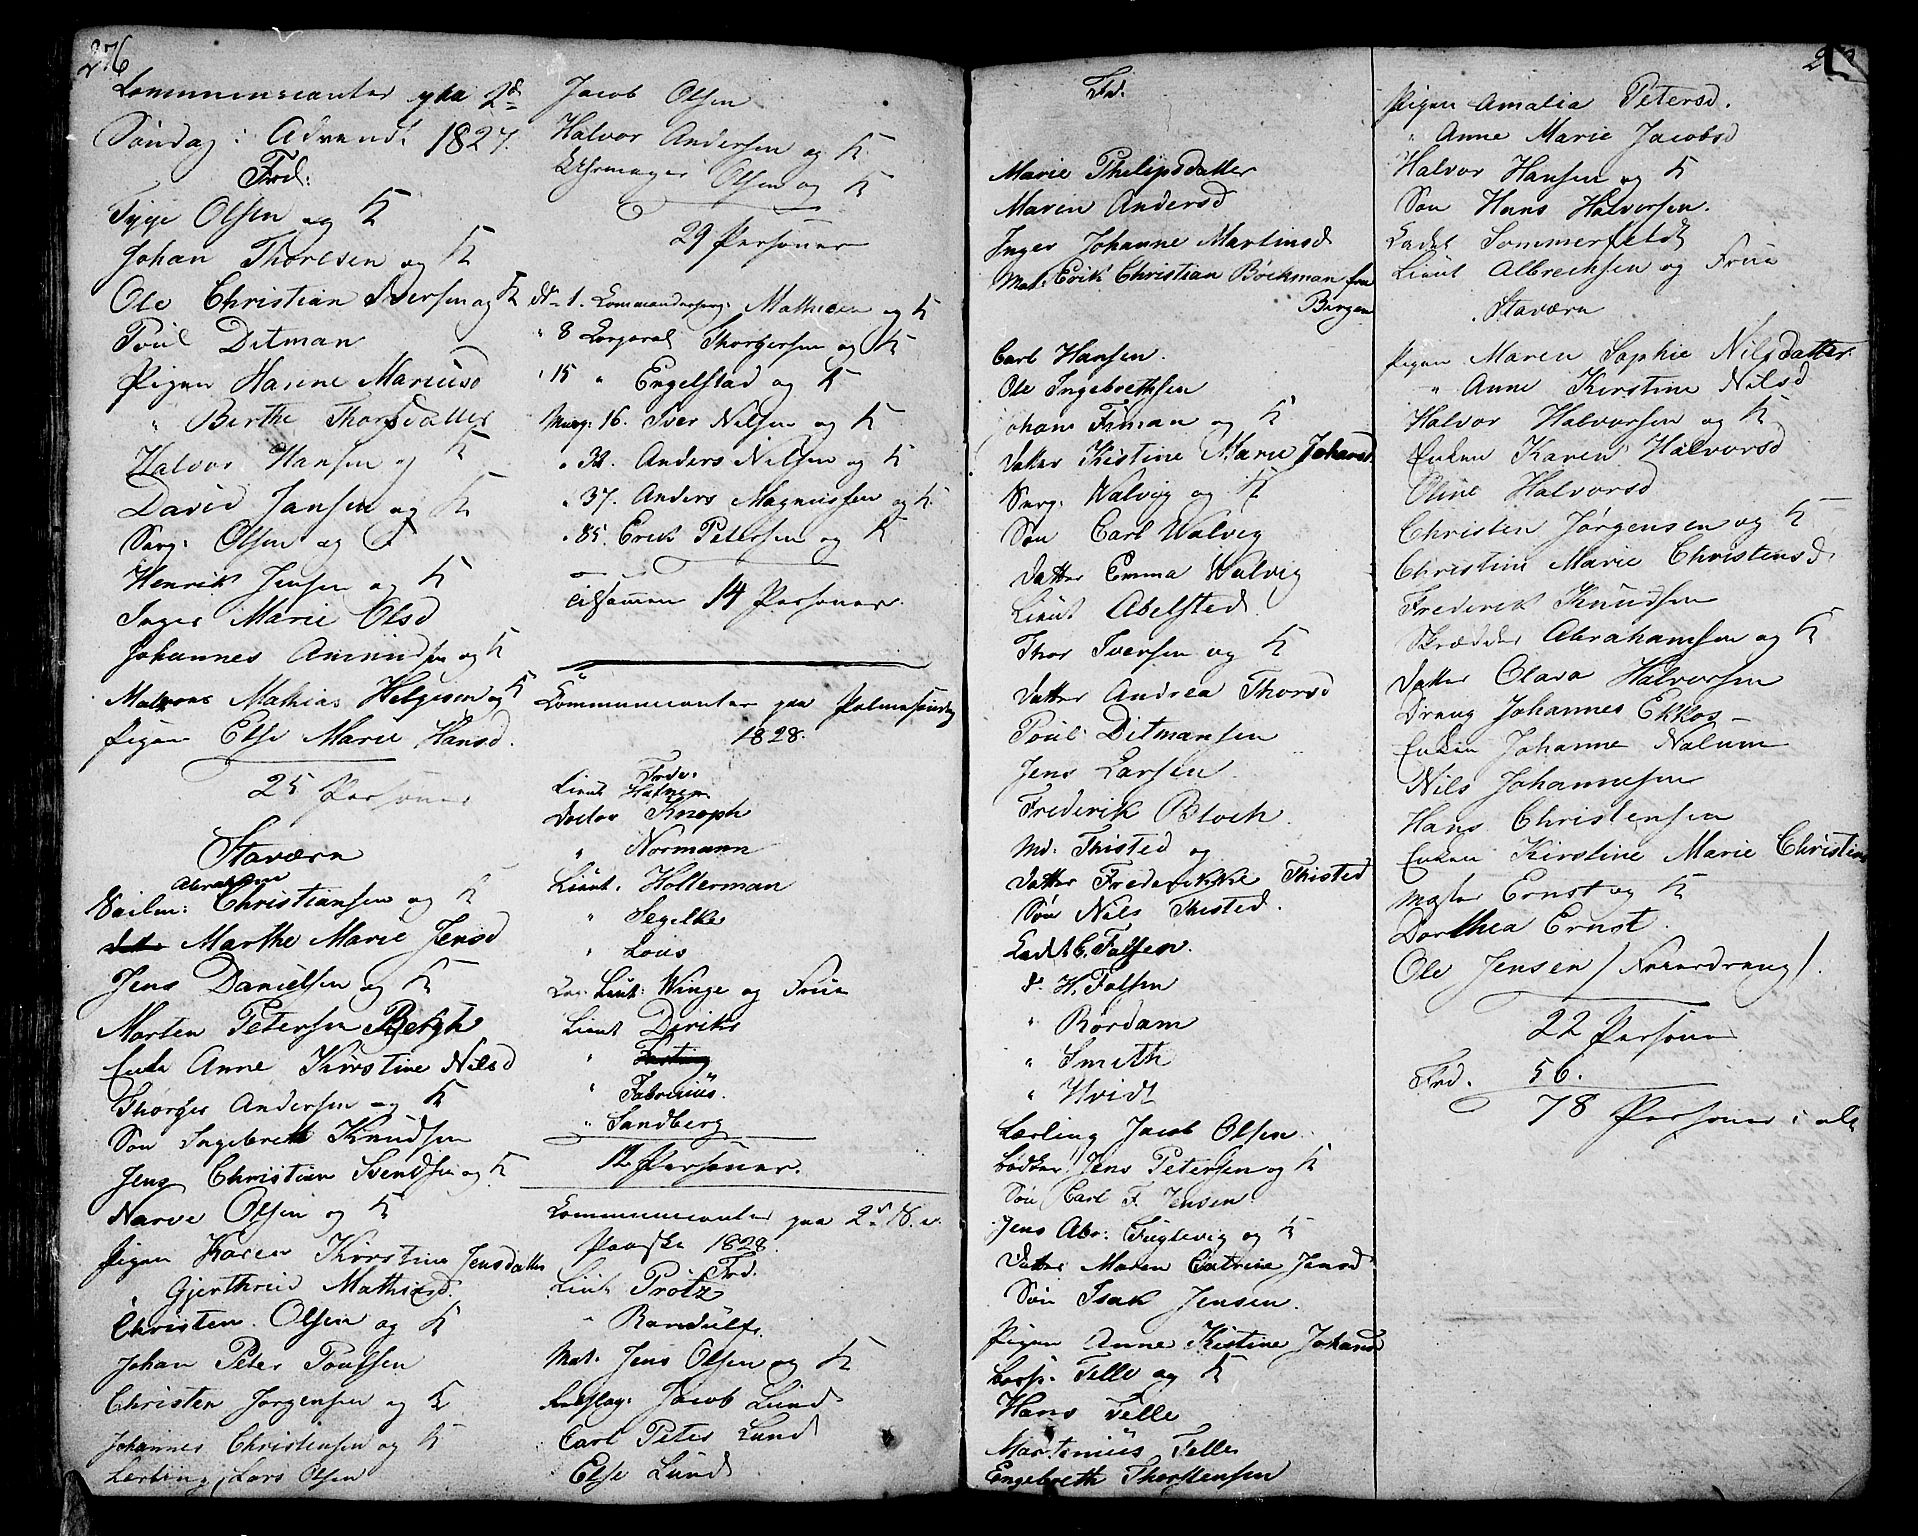 276
Communicanter paa 2d
Søndag i Advent 1827.
Frd:
Tyge Olsen og K
Johan Thoresen og K
Ole Christian Iversen og K
Poul Ditman
Pigen Hanne Mariusd
" Berthe Thorsdatter
Halvor Hansen og K
David Jansen og K
Serg: Olsen og K
Henrik Jensen og K
Inger Marie Olsd
Johannes Amundsen og K
Mathias Helgesen og K
Pigen Else Marie Hansd.
25 Personer
Staværn
Abraham
Christiansen og K
Marthe Marie Jensd
Jens Danielsen og K
Morten Petersen Bergh
Enke Anne Kirstine Nilsd
Thorger Andersen og K
Søn Ingebreth Knudsen
Jens Christian Svendsen og K
Narve Olsen og K
Pigen Karen Kirstine Jensdatter
" Gjerthrud Mathisd.
Christen Olsen og K
Johan Peter Poulsen
Christen Jørgensen og K
Johannes Christensen og K
Lærling Lars Olsen
Jacob Olsen
Halvor Andersen og K
Uhrmager Olsen og K
29 Personer
No 1. Commandersergt Mathisen og K
" 8 Corporal Thorgersen og K
" 15 " Engelstad og K
Marg: 16. Iver Nilsen og K
" 32. Anders Nilsen og K
" 37. Anders Magnussen og K
" 85. Erik Petersen og K
Tilsammen 14 Personer.
Communicanter paa Palmesøndag
1828.
Frd.
Lieut
Doctor Knoph
" Normann
Lieut. Holterman
" Segelke
" Lous
Lieut: Winge og Frue
Lieut Diriks
" Fabritius.
" Sandberg
12 Personer.
Communicanter paa 2d
Paaske 1828.
Frd.
Lieut Protz
" Randulf.
Mat. Jens Olsen og K
Jacob Lund
Carl Peter Lund
Else Lund
Frd.
Marie Philipsdatter
Maren Andersd
Inger Johanne Martinsd
Mat: Erik Christian Bøckman fra
Bergen
Carl Hansen.
Ole Ingebrethsen
Johan Firman og K
Datter Kistine Marie Johansd
Serg: Walvig og K
Søn Carl Walvig
Datter Emma Walvig
Lieut Abelsted.
Thor Iversen og K
Datter Andrea Thorsd
Poul Ditmansen
Jens Larsen.
Frederik Bloch.
Md. Thisted og
Datter Frederikke Thisted
Søn Nils Thisted.
Cadet C. Falsen.
" H. Falsen
" Rördam
" Smith
" Hvidt
Lærling Jacob Olsen.
Bødker Jens Petersen og K
Søn Carl F. Jensen
Jens Abr: Fuglevig og K
Datter Maren Catrine Jensd
Søn Isak Jensen.
Pigen Anne Kistine Johansd
Telle og K
Hans Telle
Martinius Telle
Engebreth Thorstensen
Pigen Amalia Petersd.
" Anne Marie Jacobsd
Halvor Hansen og K
Søn Hans Halvorsen.
Cadet Sommerfeldt
Lieut Albrechsen og Frue
Staværn
Pigen Maren Sophie Nilsdatter
" Anne Kirstine Nilsd
Halvor Halvorsen og K
Enken Karen Halvorsd
Oline Halvorsd
Christen Jørgensen og K
Christine Marie Christensd.
Frederik Knudsen
Skrædder Abrahamsen og K
Datter Olava Halvorsen
Dreng Johannes Ekkos
Enken Johanne Nalum
Nils Johannesen
Hans Christensen
Enken Kirstine Marie Christens
Mester Ernst og K
Dorthea Ernst.
Ole Jensen
22 Personer
Frd. 56.
78 Personer i alt